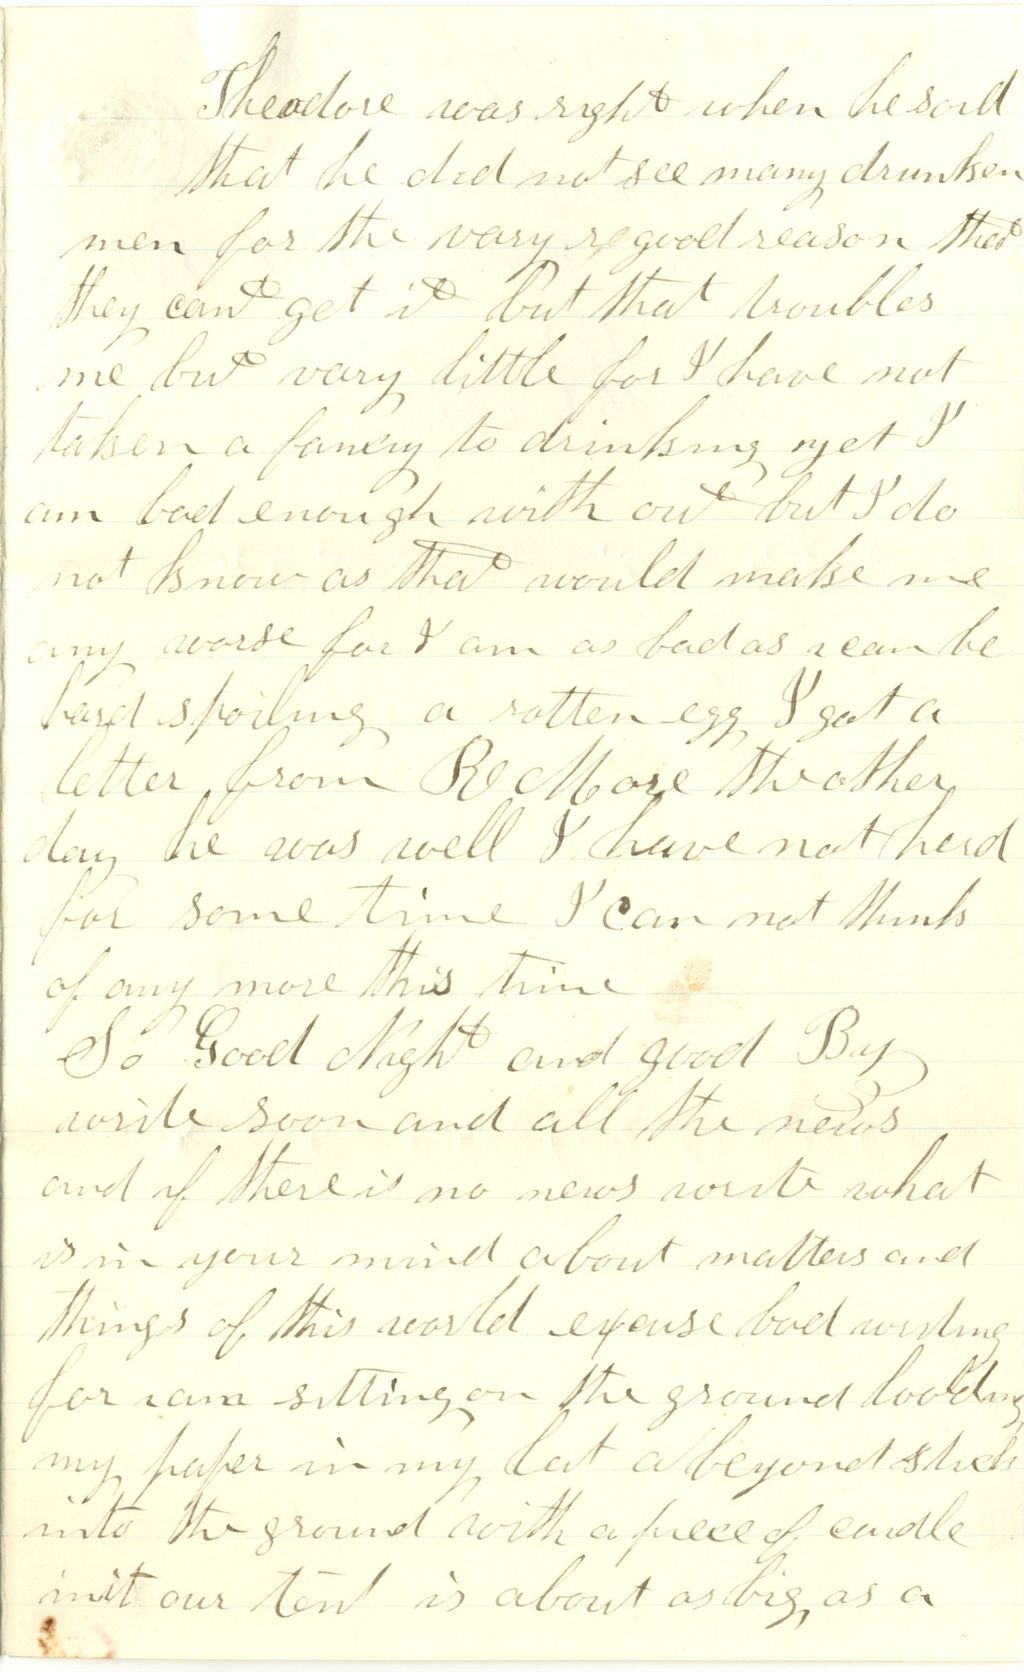 Theodore was right when he said
that he did not see many drunken
men for the vary good reason that
they cant get it but that troubles
me but vary little for I have not
taken a fancy to drinking yet I
am bad enough with out but I do
not know as that would make me
any worse for I am as bad as i can be
hard spoiling a rotten egg I got a
letter from R More the other
day he was well I have not herd
for some time I can not think
of any more this time
So Good Night and good By
write soon and all the news
and if there is no news write what
is in your mind about matters and
things of this world excuse bad writing
for i am sitting on the ground
my paper in my a beyond stick
into the ground with a piece of candle
in it our tent is about as big as a